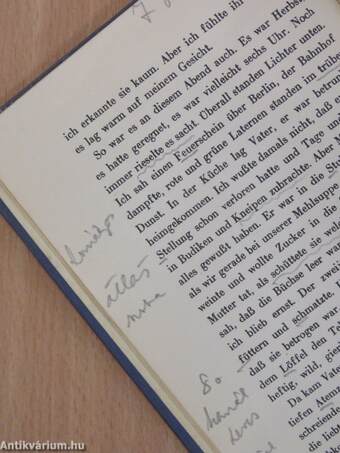 7
ich erkannte sie kaum. Aber ich fühlte ihr
es lag warm auf meinem Gesicht.
So war es an diesem Abend auch. Es war Herbst,
es hatte geregnet, es war vielleicht sechs Uhr. Noch
immer rieselte es sacht. Überall standen Lichter unten.
Ich sah einen Feuerschein über Berlin, der Bahnhof
dampfte, rote und grüne Laternen standen im trüben
Dunst. In der Küche lag Vater, er war betrun
heimgekommen. Ich wußte damals nicht, daß er
Stellung schon verloren hatte und Tage und
in Budiken und Kneipen zubrachte. Aber M
alles gewußt haben. Er war in die Stu
als wir gerade bei unserer Mehlsuppe
weinte und wollte Zucker in die
Mutter tat, als schüttete sie welch
sah, daß die Büchse leer war
ich blieb ernst. Der zwei
füttern und schmatzte. I
daß sie betrogen war
dem Löffel den Tel
heftig, wild, gieri
Da kam Vate
tiefen Atemz
schreiende
stieß
állás
8.
Antikvárium.hu